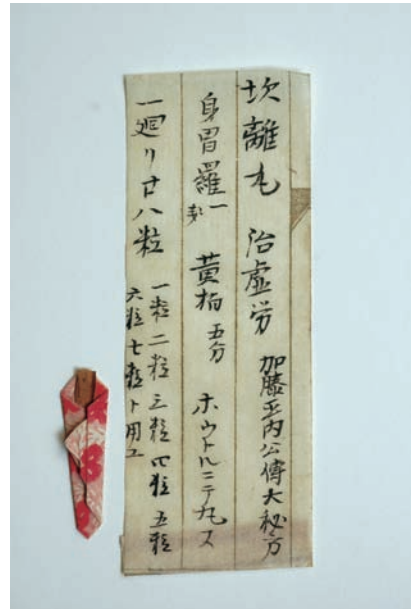 坎離丸 治虚労 加藤正内公傳大秘方
身冒羅一 黄柏五分 ホウトルニテ丸ス
一廻リ廿八粒 一粒二粒三粒四粒五粒
六粒七粒ト用ユ